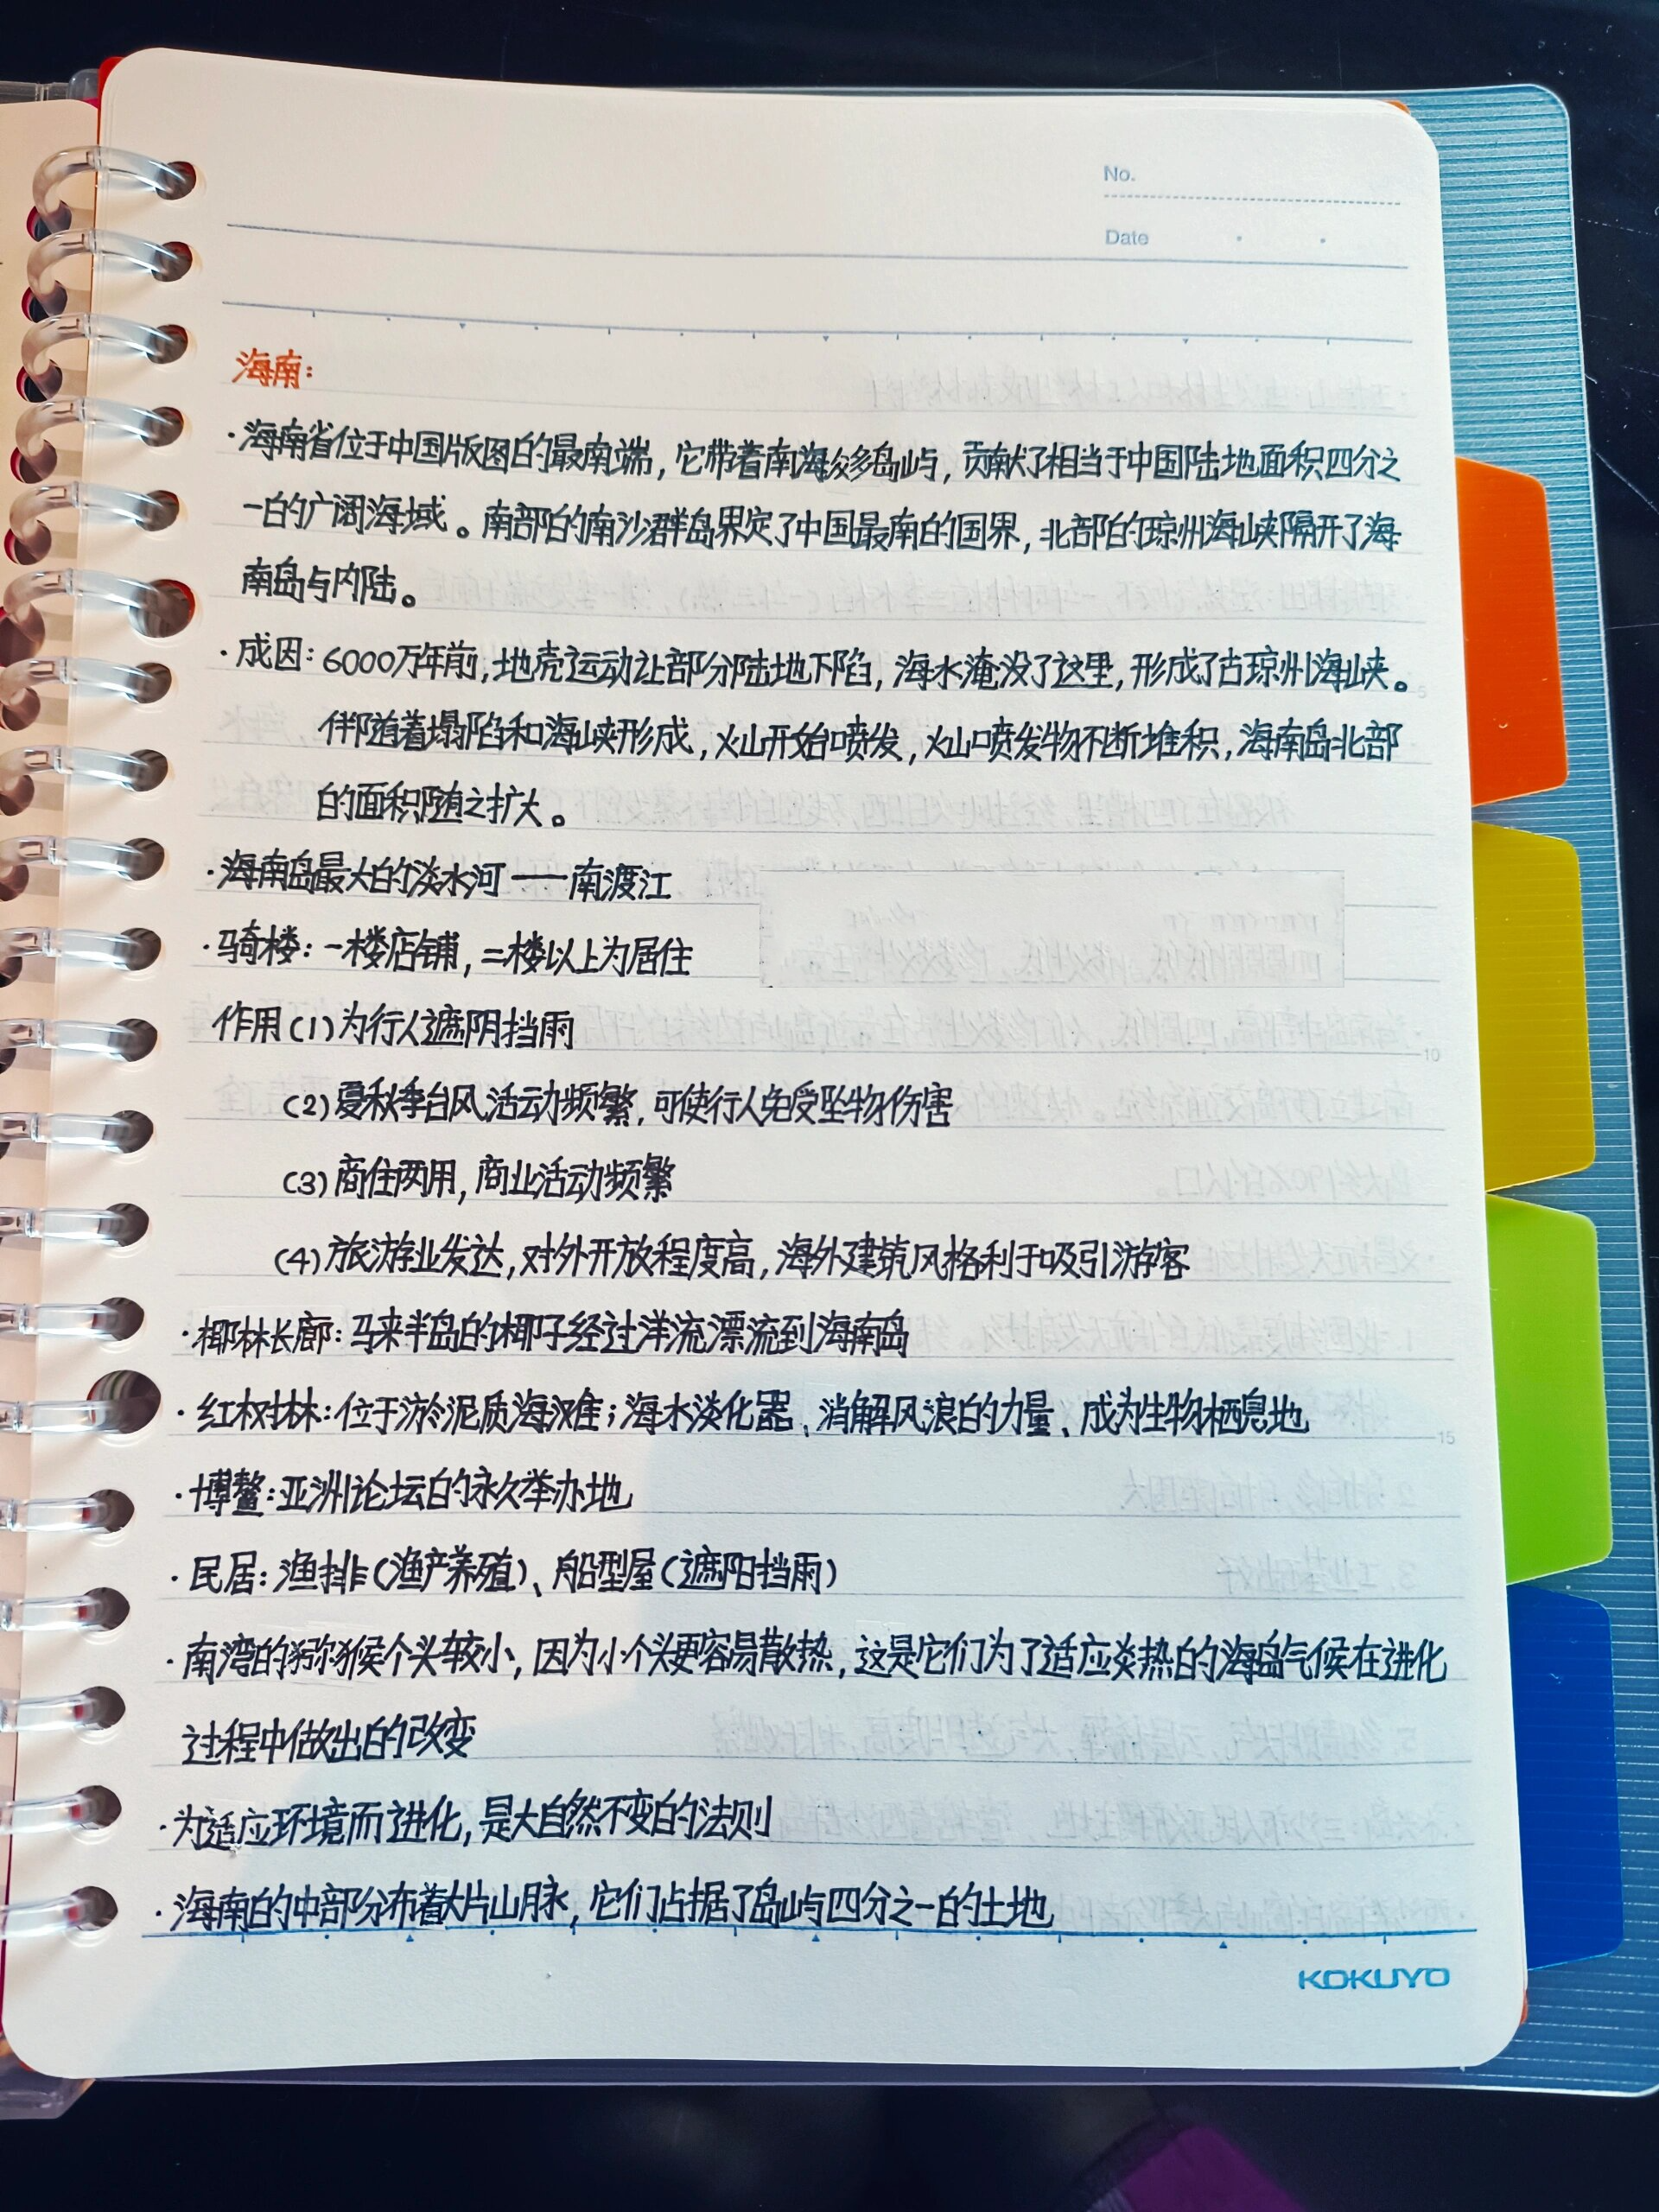 No.
Date
海南:
·海南省位于中国版图的最南端,它带着南海众多岛屿,贡献了相当于中国陆地面积四分之
一的广阔海域。南部的南沙群岛界定了中国最南的国界,北部的琼州海峡隔开了海
南岛与内陆。
·成因:6000万年前,地壳运动让部分陆地下陷,海水淹没了这里,形成了古琼州海峡。
伴随着塌陷和海峡形成,火山开始喷发,火山喷发物不断堆积,海南岛北部
的面积随之扩大。
·海南岛最大的淡水河——南渡江
·骑楼:一楼店铺,二楼以上为居住
作用(1)为行人遮阴挡雨
(2)夏秋季台风活动频繁,可使行人免受坠物伤害
(3)商住两用,商业活动频繁
(4)旅游业发达,对外开放程度高,海外建筑风格利于吸引游客
·椰林长廊:马来半岛的椰子经过洋流漂流到海南岛
·红树林:位于淤泥质海滩;海水淡化器、消解风浪的力量、成为生物栖息地
·博鳌:亚洲论坛的永久举办地
·民居:渔排(渔产养殖)、船型屋(遮阳挡雨)
·南湾的猕猴个头较小,因为小个头更容易散热,这是它们为了适应炎热的海岛气候在进化
过程中做出的改变
·为适应环境而进化,是大自然不变的法则
·海南的中部分布着大片山脉,它们占据了岛屿四分之一的土地
5
10
15
KOKUYO